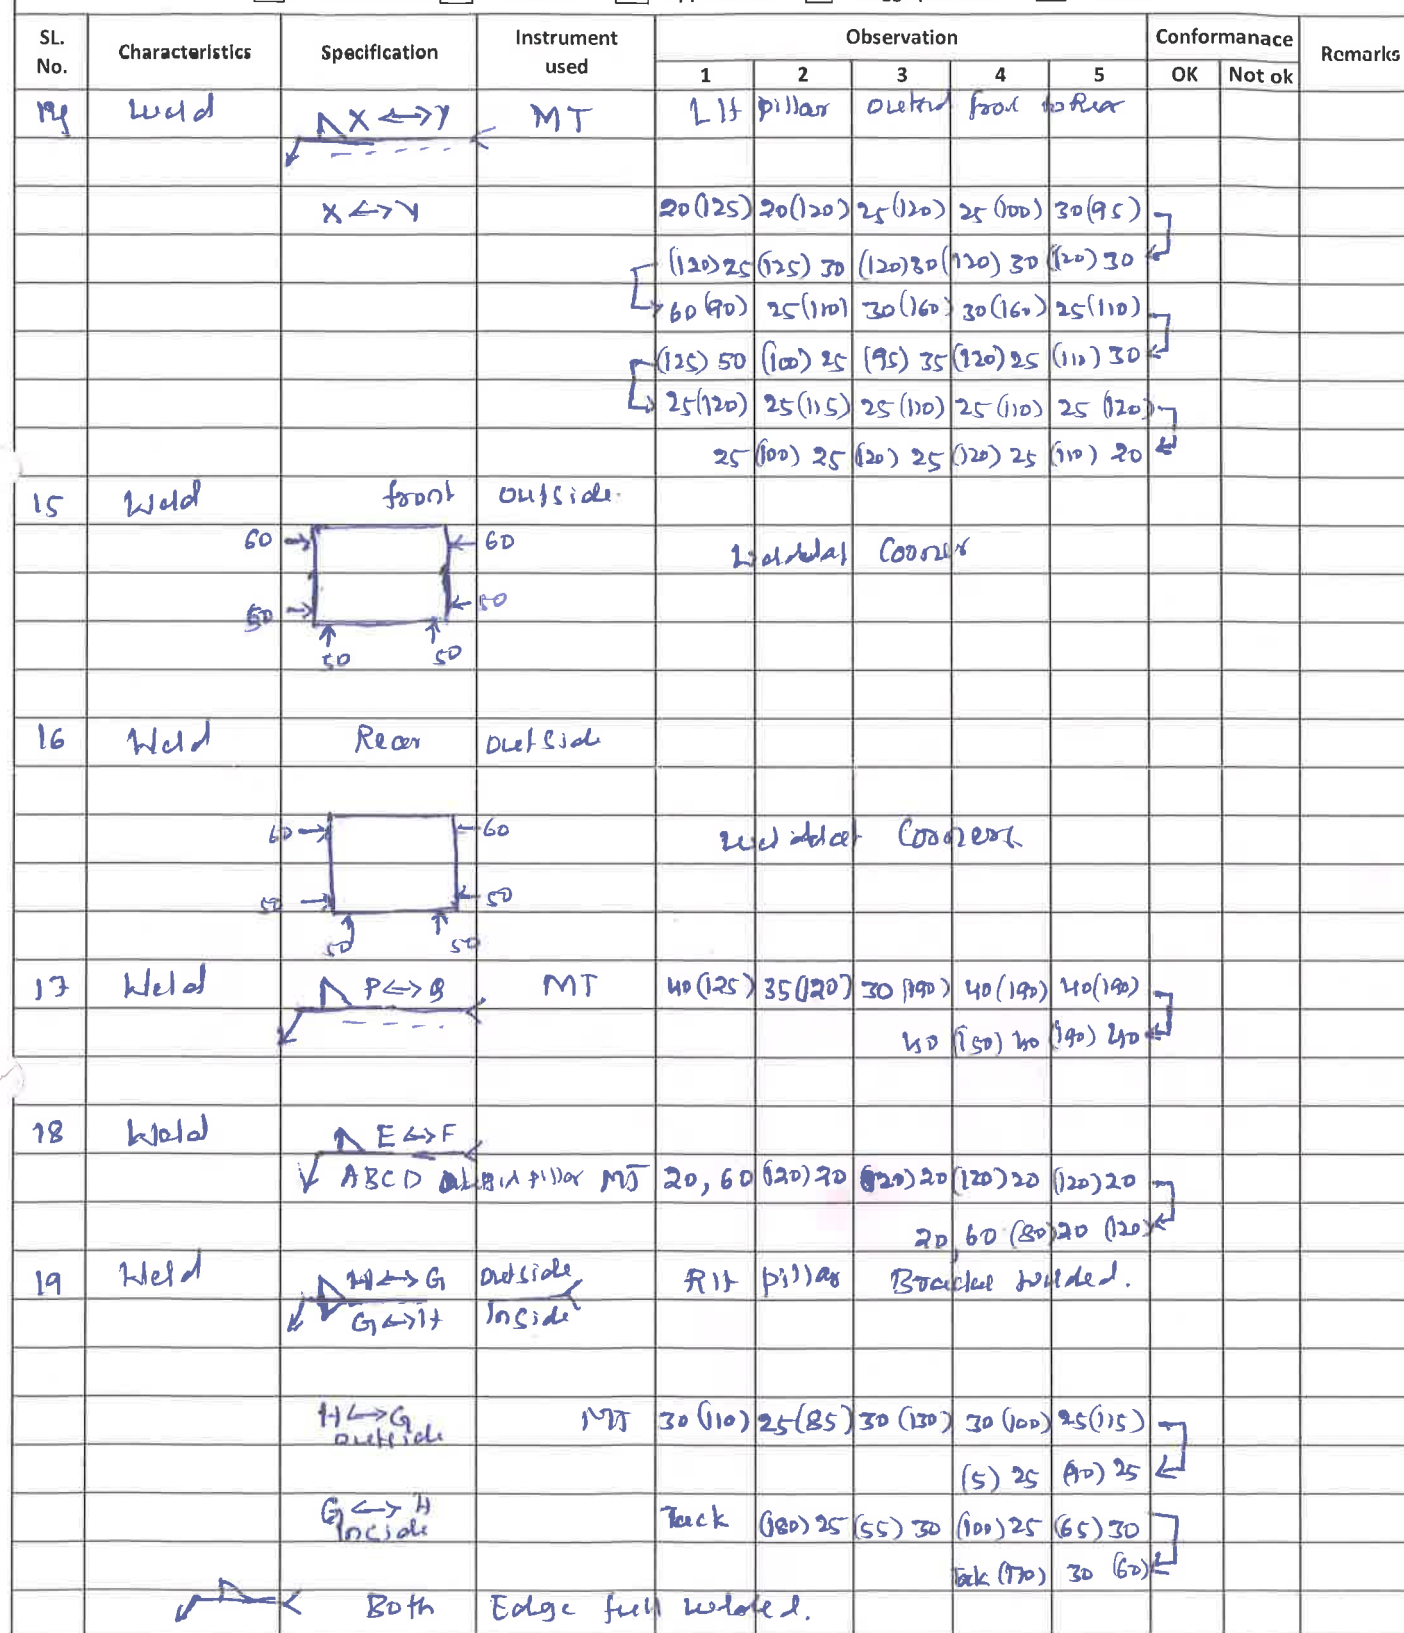 SL. No. Characteristics Specification Instrument used Observation Conformanace Remarks
1 2 3 4 5 OK Not ok
14 Weld X <-> Y MT LH pillar front to Rear
X <-> Y 20(125) 20(120) 25(120) 25(100) 30(95)
(120)25 (125)30 (120)30 (120)30 (120)30
60(90) 25(110) 30(160) 30(160) 25(110)
(125)50 (100)25 (95)35 (120)25 (110)30
25(120) 25(115) 25(110) 25(110) 25(120)
25 (100)25 (120)25 (120)25 (110)20
15 Weld front outside.
60 60
Corner
50 50
50 50
16 Weld Rear outside
60 60
Corner
50 50
50 50
17 Weld P <-> Q MT 40(125) 35(120) 30(190) 40(190) 40(190)
40 (150)40 (190)40
18 Weld E <-> F
ABCD pillar MT 20, 60 (120)20 (120)20 (120)20 (120)20
20, 60 (80)20 (120)
19 Weld H <-> G outside RH pillar Bracket welded.
G <-> H Inside
H <-> G MT 30(110) 25(85) 30(130) 30(100) 25(115)
outside
(5)25 (90)25
G <-> H Tack (180)25 (55)30 (100)25 (65)30
Inside
Tack (170) 30 (60)
Both Edge full welded.